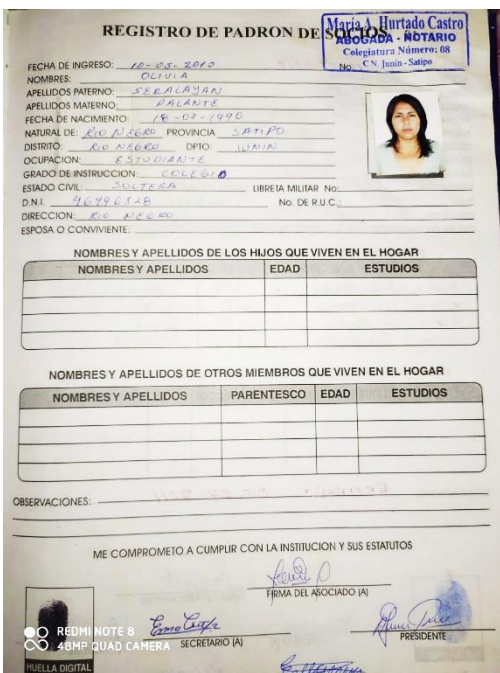 REGISTRO DE PADRON DE SOCIOS
Maria A. Hurtado Castro
ABOGADA - NOTARIO
Colegiatura Número: 08
No. C.N. Junín - Satipo
FECHA DE INGRESO: 10-05-2010
NOMBRES: OLIVIA
APELLIDOS PATERNO: SERALAYAN
APELLIDOS MATERNO: PALANTE
FECHA DE NACIMIENTO: 18-02-1990
NATURAL DE: RIO NEGRO PROVINCIA SATIPO
DISTRITO: RIO NEGRO DPTO: JUNIN
OCUPACION: ESTUDIANTE
GRADO DE INSTRUCCION: COLEGIO
ESTADO CIVIL: SOLTERA LIBRETA MILITAR No:
D.N.I. 46496828 No. DE R.U.C.:
DIRECCION: RIO NEGRO
ESPOSA O CONVIVIENTE:
NOMBRES Y APELLIDOS DE LOS HIJOS QUE VIVEN EN EL HOGAR
NOMBRES Y APELLIDOS EDAD ESTUDIOS
NOMBRES Y APELLIDOS DE OTROS MIEMBROS QUE VIVEN EN EL HOGAR
NOMBRES Y APELLIDOS PARENTESCO EDAD ESTUDIOS
OBSERVACIONES:
ME COMPROMETO A CUMPLIR CON LA INSTITUCION Y SUS ESTATUTOS
FIRMA DEL ASOCIADO (A)
SECRETARIO (A)
PRESIDENTE
REDMI NOTE 8
48MP QUAD CAMERA
HUELLA DIGITAL